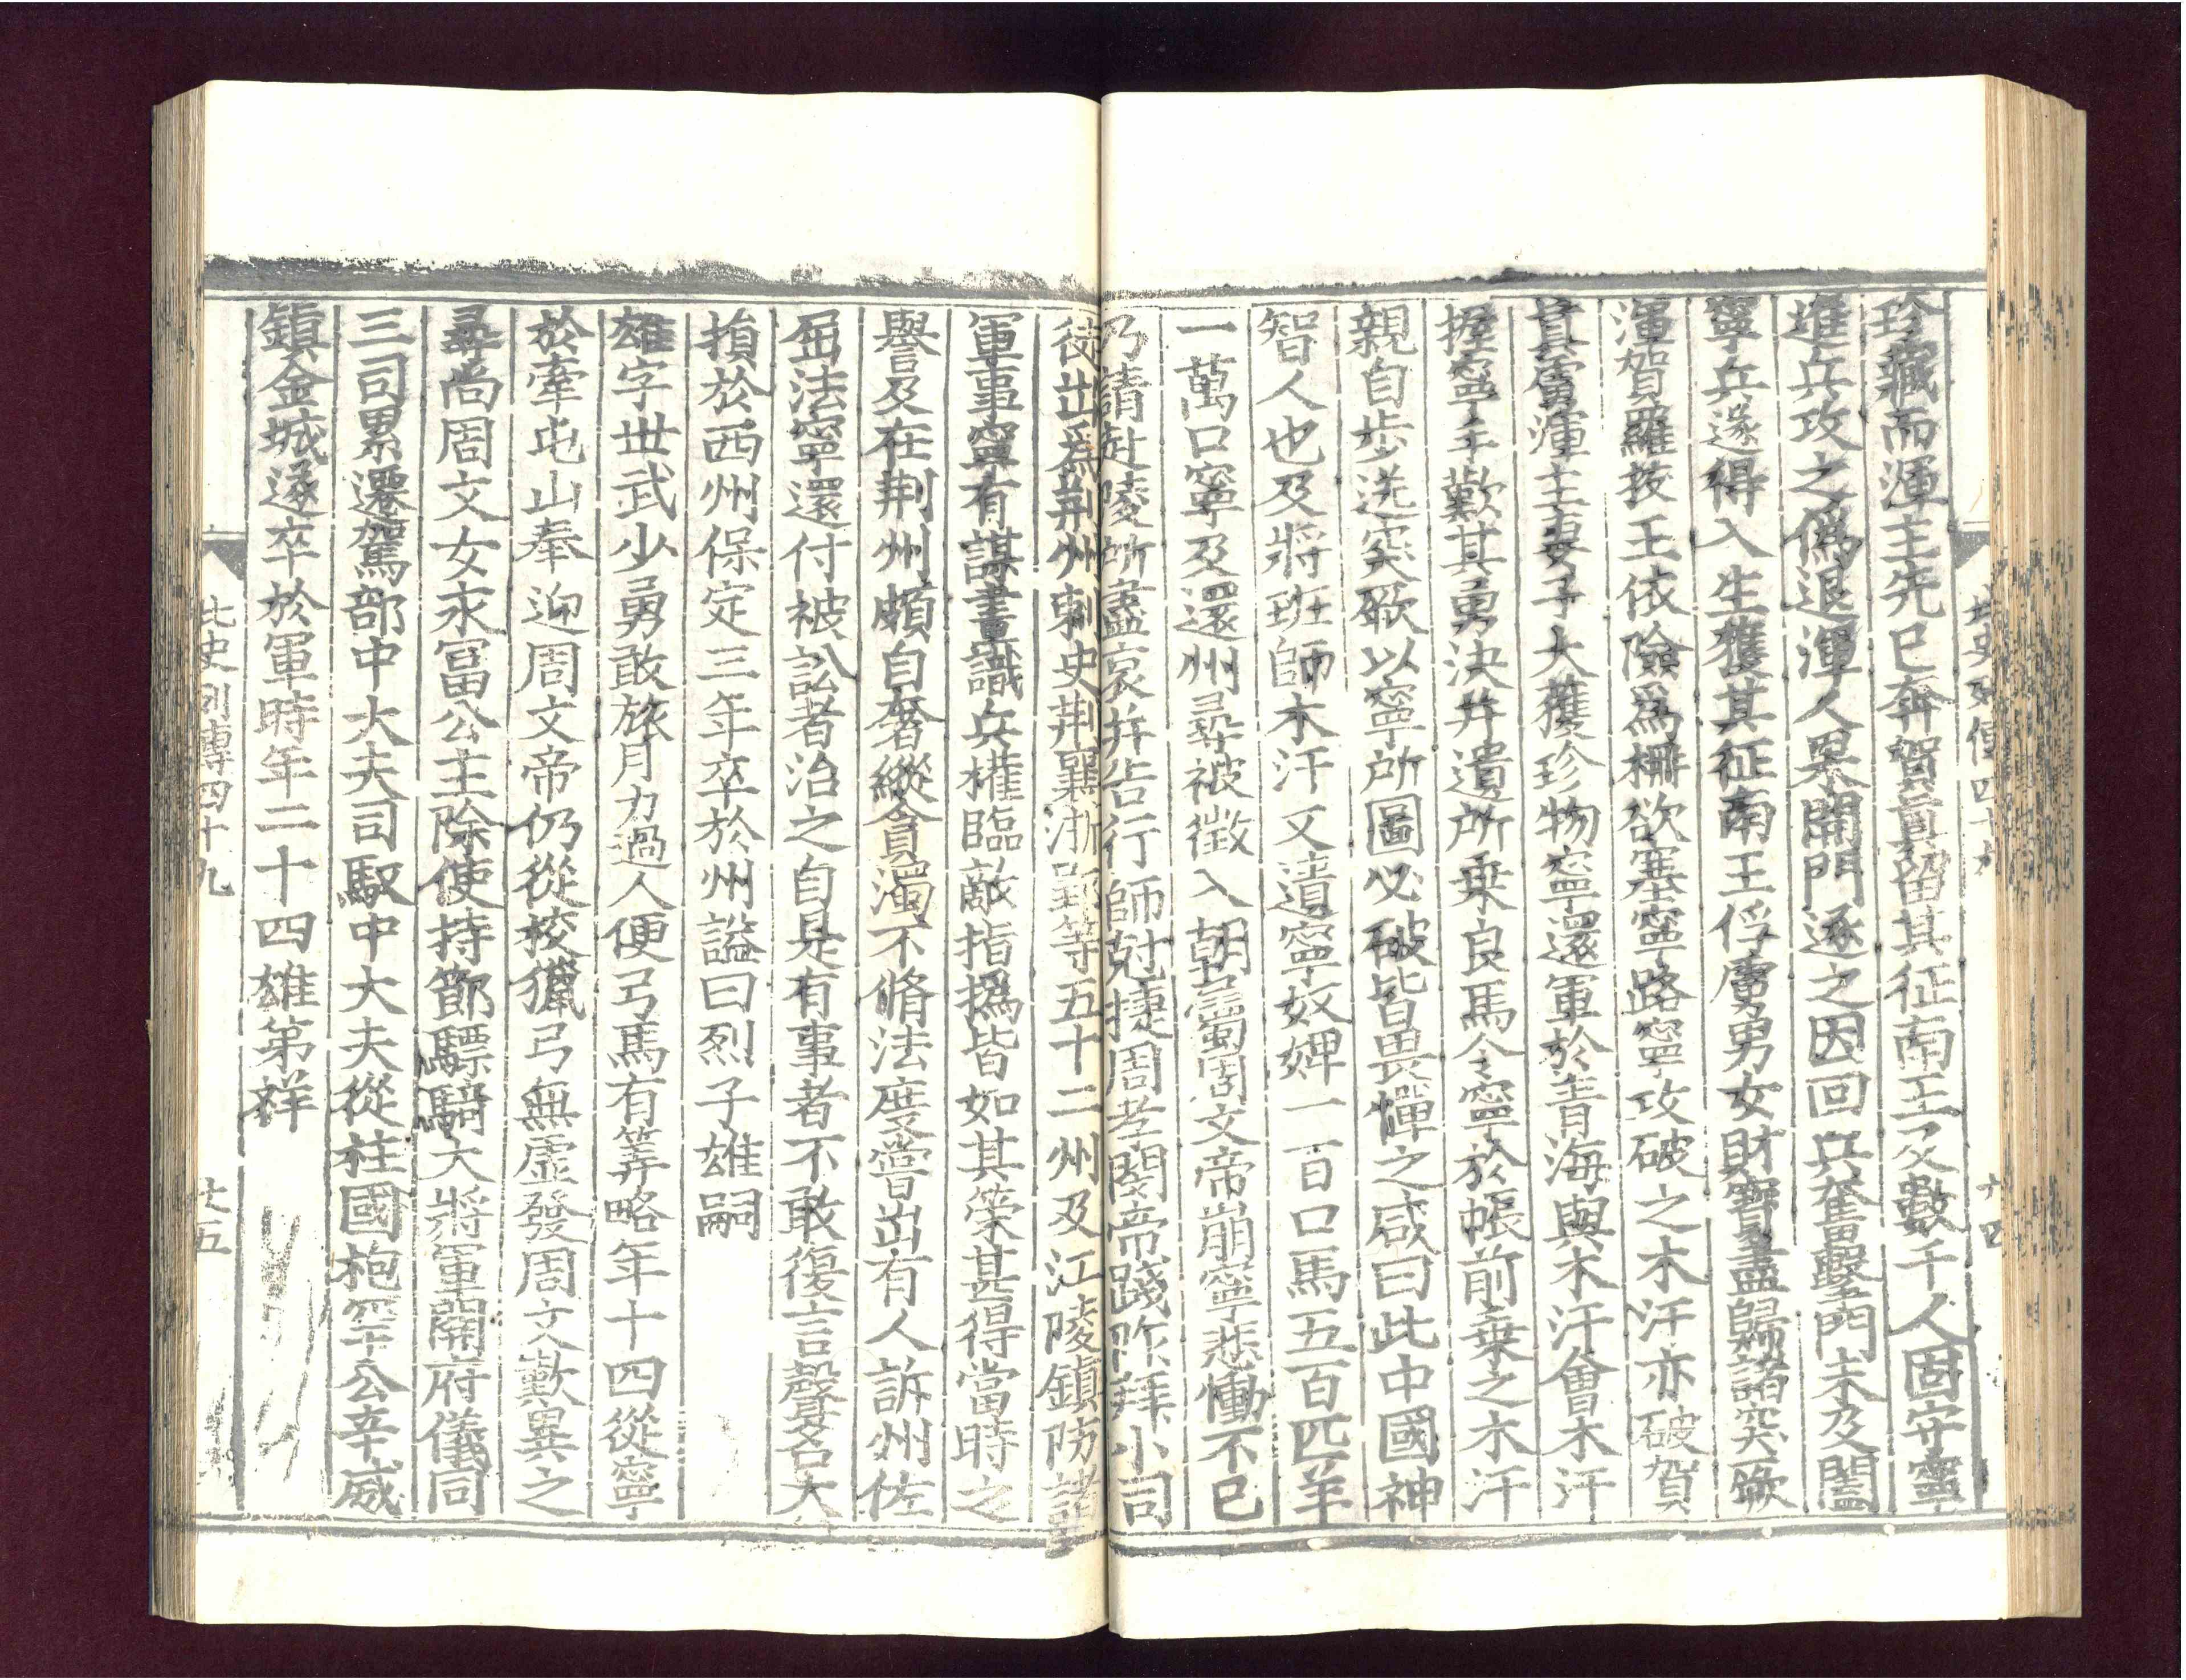 珍藏而渾主先已奔賀真留其征南王及數千人固守寧
進兵攻之僞退渾人果開門逐之因回兵奮擊門未及闔
寧兵遂得入生獲其征南王俘虜男女財寶盡歸諸突厥
渾賀羅拔王依險爲柵欲塞寧路寧攻破之木汗亦破賀
真虜渾主妻子大獲珍物寧還軍於青海與木汗會木汗
握寧手歎其勇決并遺所乗良馬令寧於帳前乗之木汗
親自步送突厥以寧所圖必破皆畏憚之咸曰此中國神
智人也及將班師木汗又遺寧奴婢一百口馬五百匹羊
一萬口寧及還州尋被徵入朝屬周文帝崩寧悲慟不已
乃請赴陵所盡哀并告行師剋捷周孝閔帝踐阼拜小司
徒出爲荆州刺史荆襄淅郢等五十二州及江陵鎮防諸
軍事寧有謀畫識兵權臨敵指撝皆如其策甚得當時之
譽及在荆州頗自奢縱貪濁不脩法度嘗出有人訴州佐
屈法寧還付被訟者治之自是有事者不敢復言聲名大
損於西州保定三年卒於州謚曰烈子雄嗣
雄字世武少勇敢旅力過人便弓馬有筭略年十四從寧
於牽屯山奉迎周文帝仍從挍獵弓無虛發周文歎異之
尋尚周文女永冨公主除使持節驃騎大將軍開府儀同
三司累遷駕部中大夫司馭中大夫從柱國枹罕公辛威
鎮金城遂卒於軍時年二十四雄弟祥
北史列傳四十九